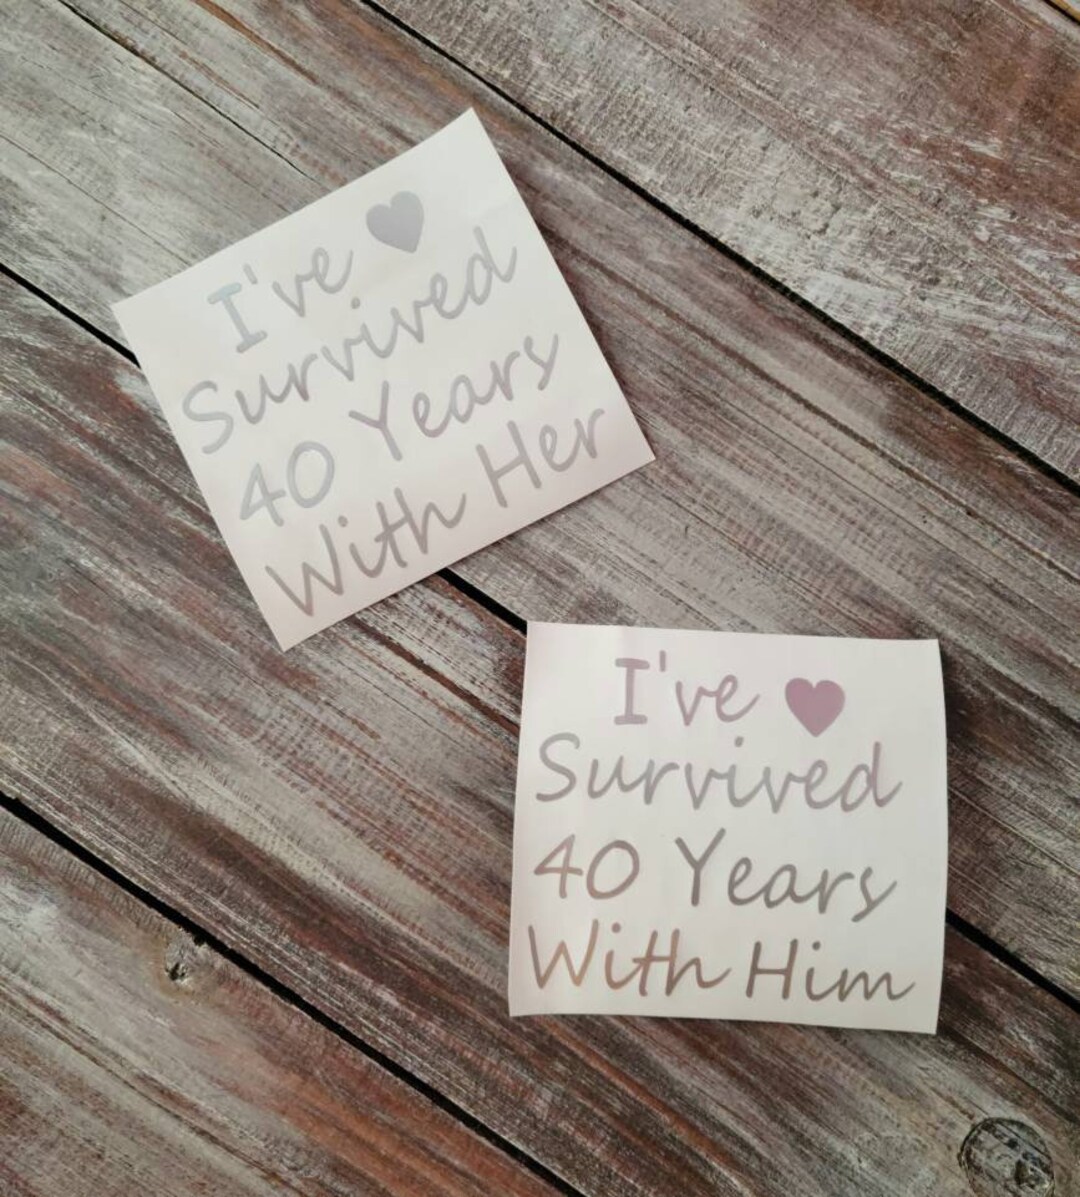 I've
Survived
40 Years
With Her
I've
Survived
40 Years
With Him